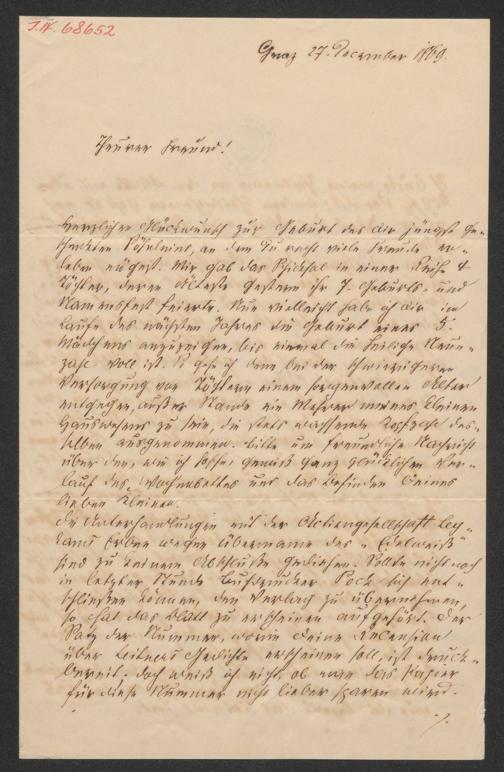 J.N. 68652
Graz 27. December 1869.
Theurer Freund!
Herzlichen Glückwunsch zur Geburt des dir jüngst ge-
schenkten Söhnleins, an dem Du recht viele Freude er-
leben mögest. Mir gab das Schicksal in einer Reihe 4
Töchter, deren älteste gestern ihr 7. Geburts- und
Namensfest feierte. Nun vielleicht habe ich dir im
Laufe des nächsten Jahres die Geburt eines 5.
Mädchens anzuzeigen, bis einmal die heilige Neun-
zahl voll ist. So gehe ich denn bei der schwierigeren
Versorgung von Töchtern einem sorgenvollen Alter
entgegen, außer Stande ein Mehrer meines kleinen
Hauswesens zu sein, die stets wachsende Kopfzahl des-
selben ausgenommen. Bitte um freundliche Nachricht
über den, wie ich hoffe, gewiß ganz glücklichen Ver-
lauf des Wochenbettes und das Befinden Deines
lieben Kleinen.
Die Unterhandlungen mit der Actiengesellschaft Ley-
kams Erben wegen Übernahme des "Edelweiß"
sind zu keinem Abschluße gediehen. Sollte nicht noch
in letzter Stunde Buchdrucker Pock sich ent-
schließen können, den Verlag zu übernehmen,
so hat das Blatt zu erscheinen aufgehört. Der
Satz der Nummer, worin Deine Recension
über Leitners Gedichte erscheinen soll, ist druck-
bereit. Doch weiß ich nicht, ob man das Papier
für diese Nummer nicht lieber sparen wird.
./.